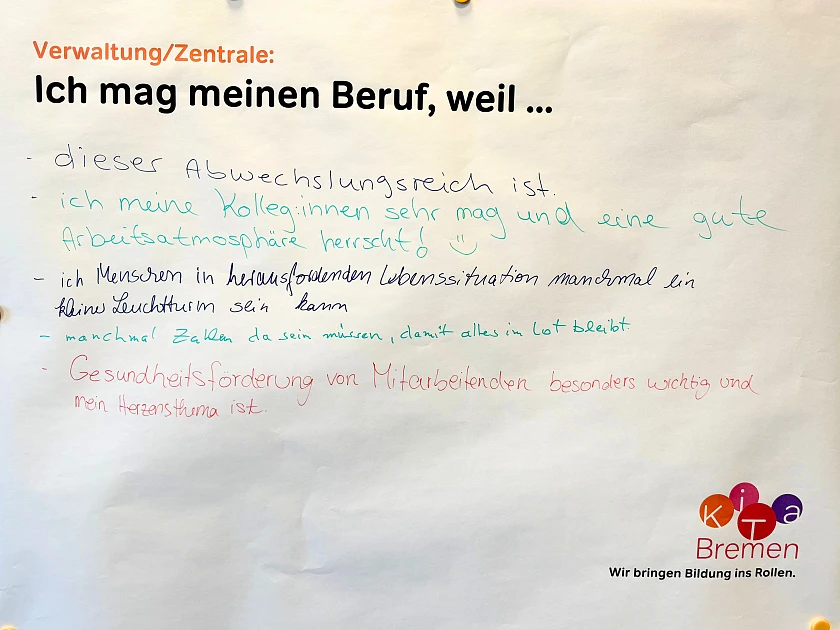 Verwaltung/Zentrale:
Ich mag meinen Beruf, weil ...
- dieser Abwechslungsreich ist.
- ich meine Kolleg:innen sehr mag und eine gute
Arbeitsatmosphäre herrscht! :)
- ich Menschen in herausfordenden Lebenssituation manchmal ein
kleiner Leuchtturm sein kann
- manchmal Zahlen da sein müssen, damit alles im Lot bleibt.
- Gesundheitsförderung von Mitarbeitenden besonders wichtig und
mein Herzensthema ist.
KiTa
Bremen
Wir bringen Bildung ins Rollen.